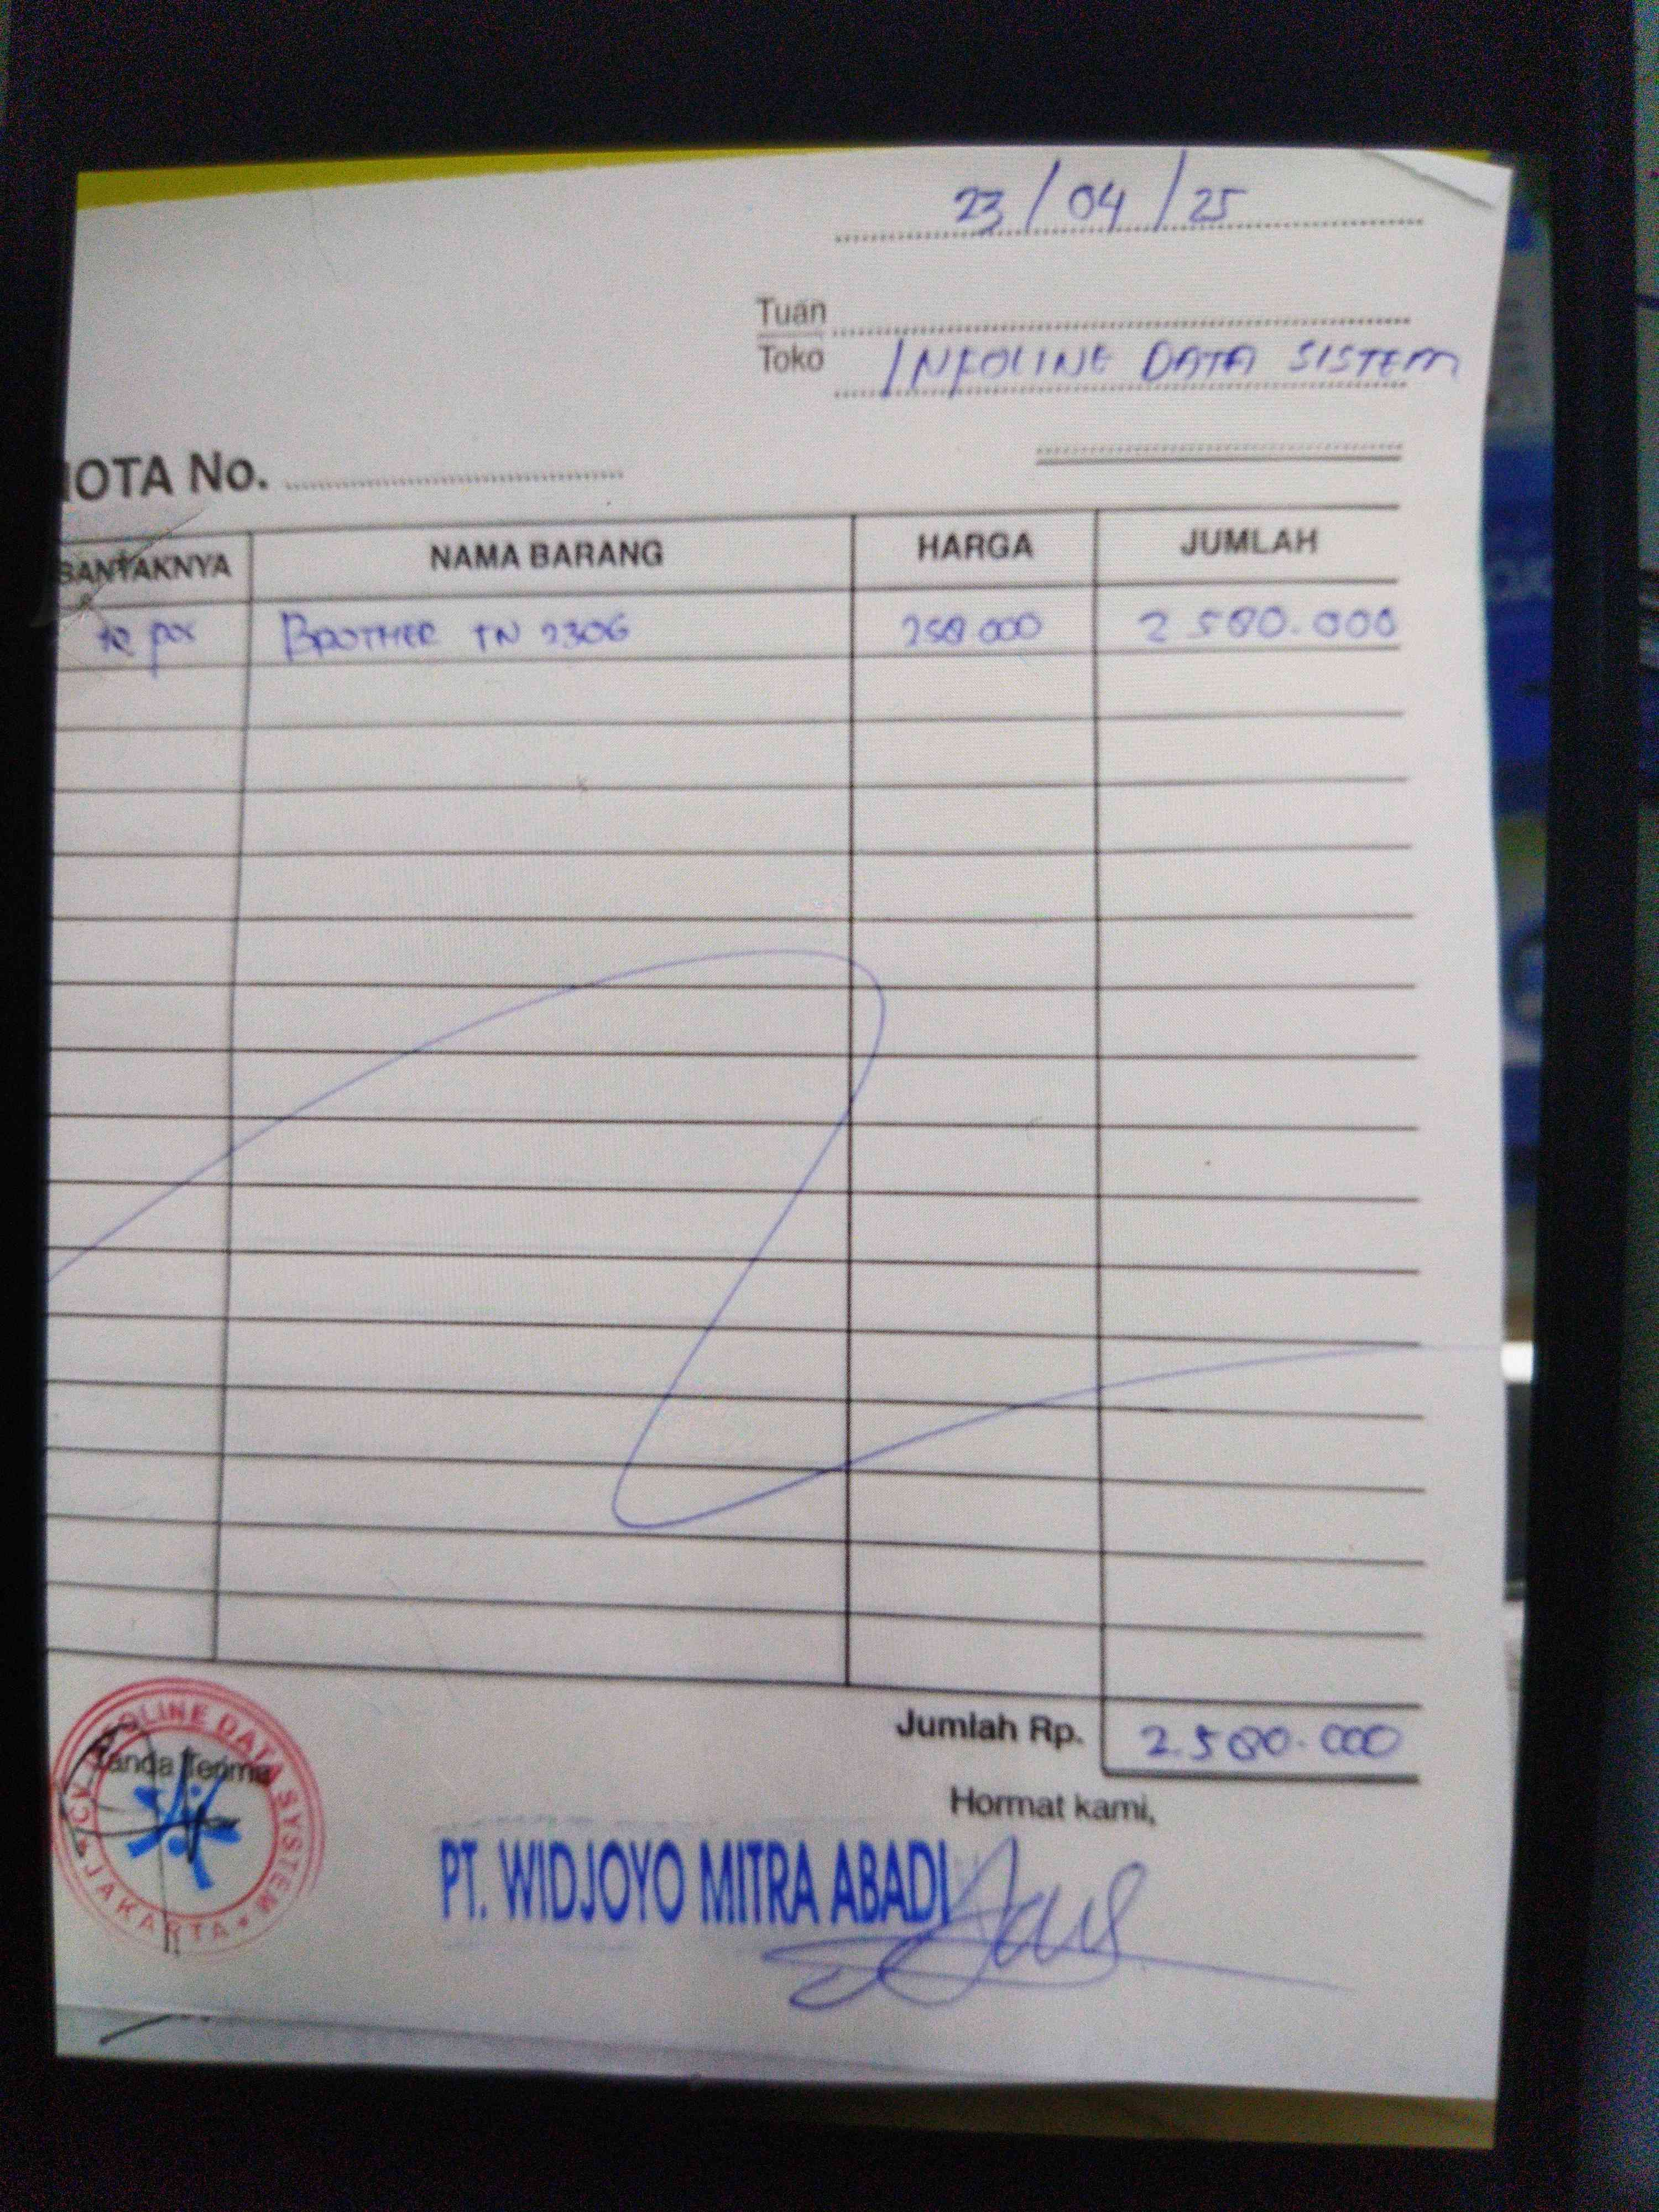 23/04/25
Tuan
Toko INFOLINE DATA SISTEM
NOTA No.
BANTAKNYA NAMA BARANG HARGA JUMLAH
10 pcs BROTHER TN 2306 258.000 2.580.000
Jumlah Rp. 2.580.000
Tanda Terima
Hormat kami,
CV. INFOLINE DATA SYSTEM
JAKARTA
PT. WIDJOYO MITRA ABADI